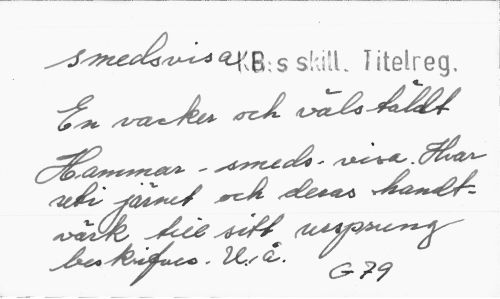 smedsvisa KB:s skill. Titelreg.
En vacker och välståldt
Hammar-smeds-visa. Hvar
uti järnet och deras handt-
värk till sitt ursprung
beskrifves. U.å.
G 79